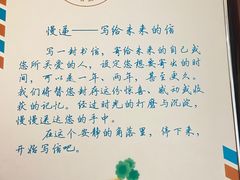 慢递——写给未来的信
写一封书信，寄给未来的自己或
您所关爱的人，设定您想要寄出的时
间，可以是一年、两年，甚至更久。
我们将替您封存这份惊喜、感动或收
获的记忆。经过时光的打磨与沉淀，
慢慢递达您的手中。
在这个安静的角落里，停下来，
开始写信吧。